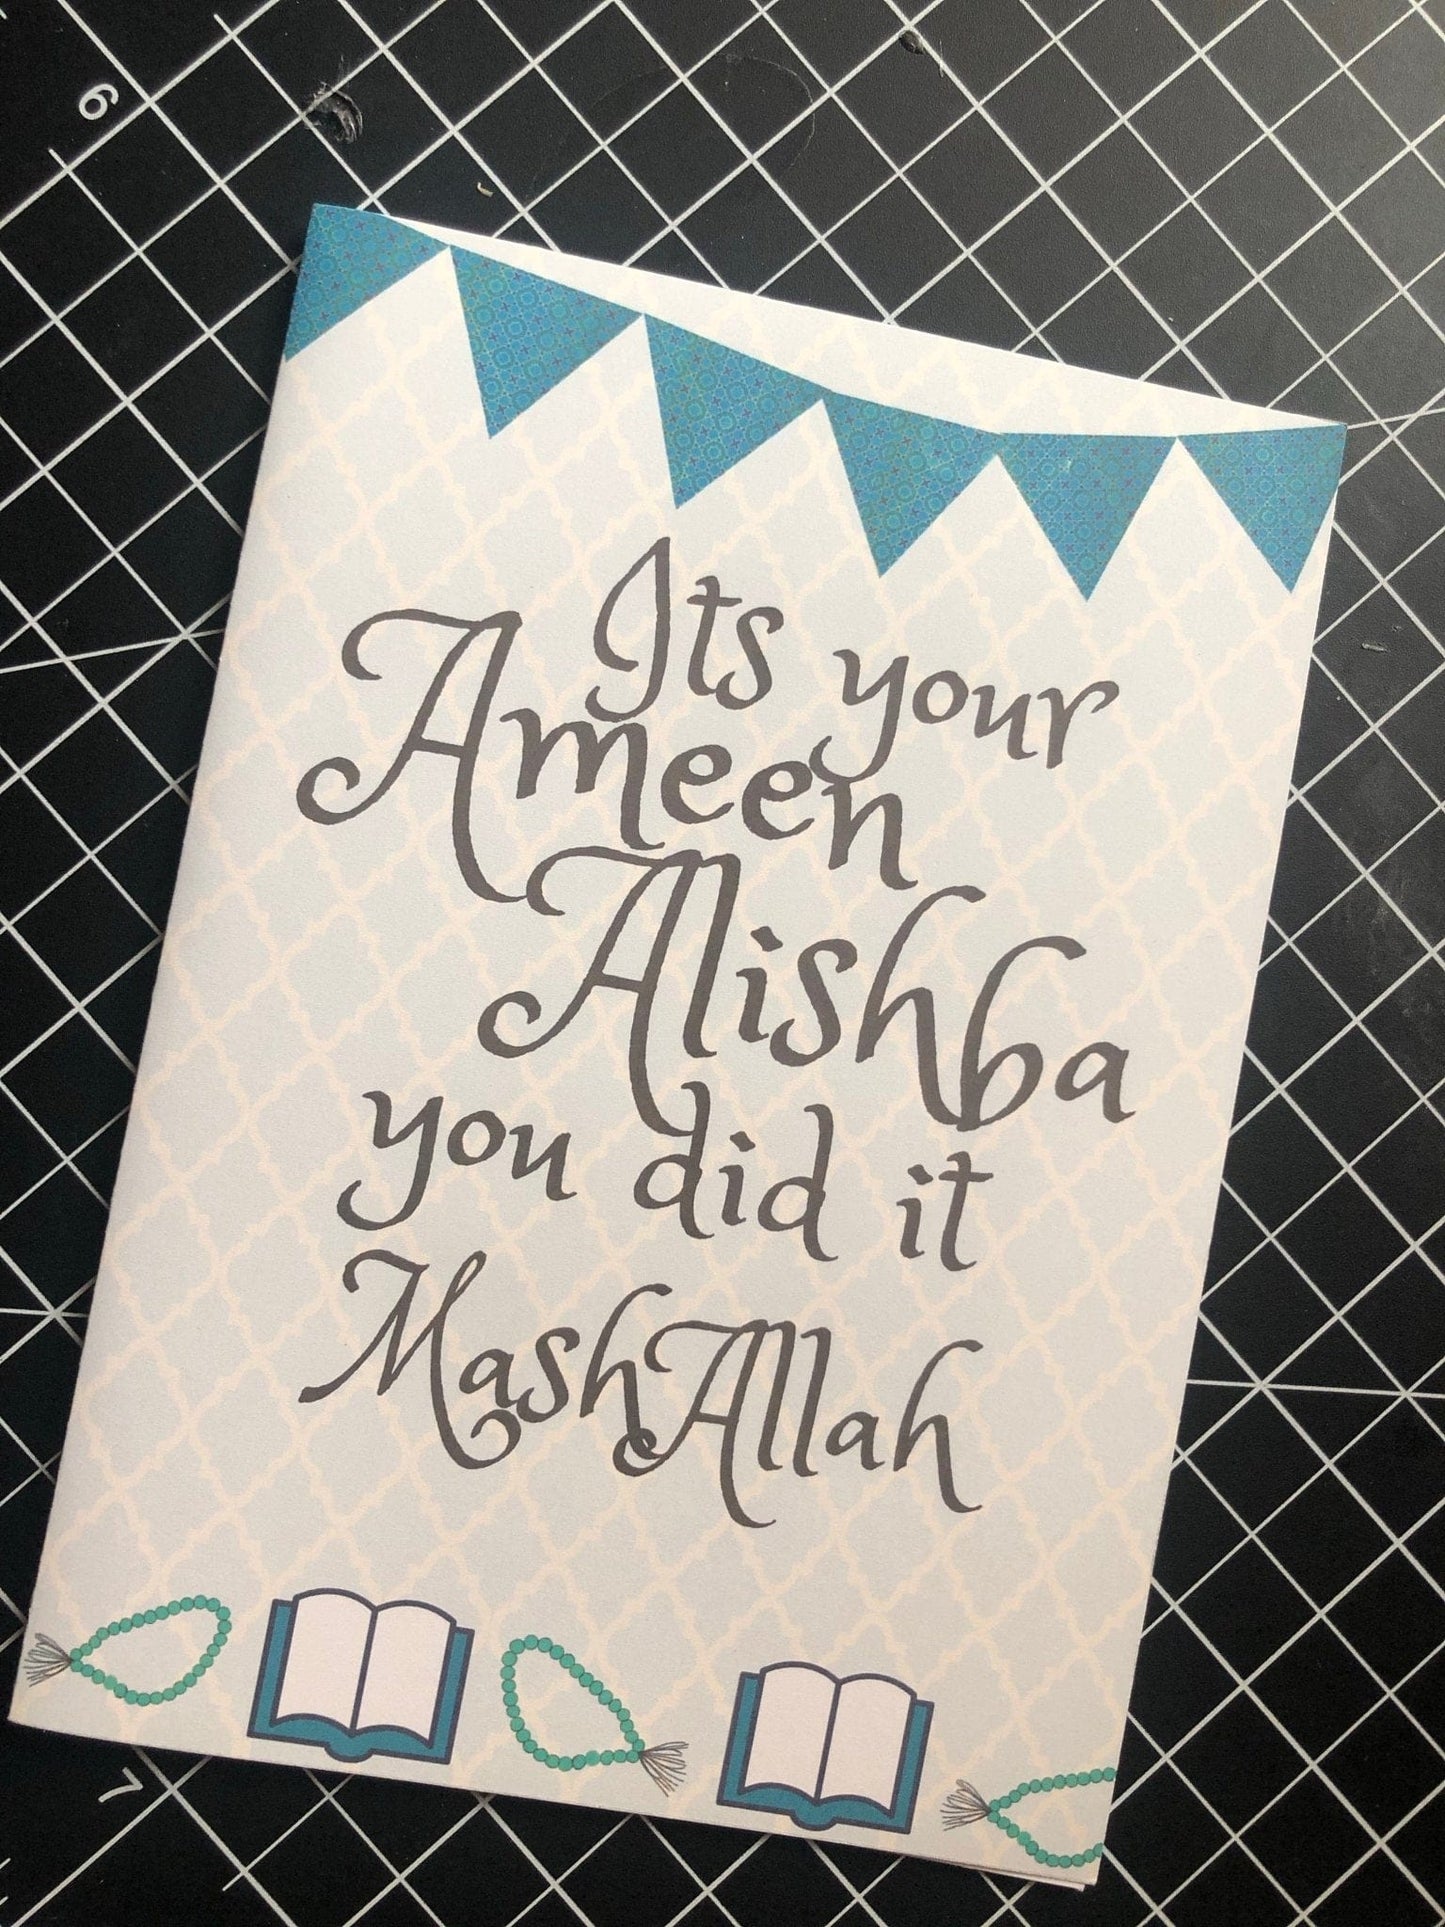 Its your
Ameen
Alishba
you did it
MashAllah
6
7